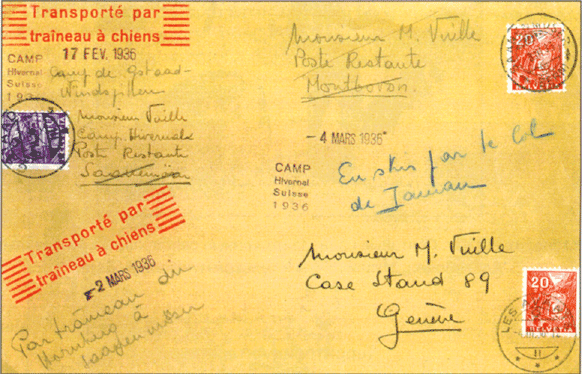 Transporté par
traîneau à chiens
17 FEV. 1936
CAMP
Hivernal
Suisse
1936
Camp de Gstaad-
Windspillen
Monsieur Vuille
Camp Hivernale
Poste Restante
Saanenmöser
Monsieur M. Vuille
Poste Restante
Montbovon.
20
HELVETIA
- 4 MARS 1936
CAMP
Hivernal
Suisse
1936
En skis par le Col
de Jaman
Transporté par
traîneau à chiens
- 2 MARS 1936
Par traîneau du
Hornberg à
Saanenmöser
Monsieur M. Vuille
Case Stand 89
Genève
20
HELVETIA
LES